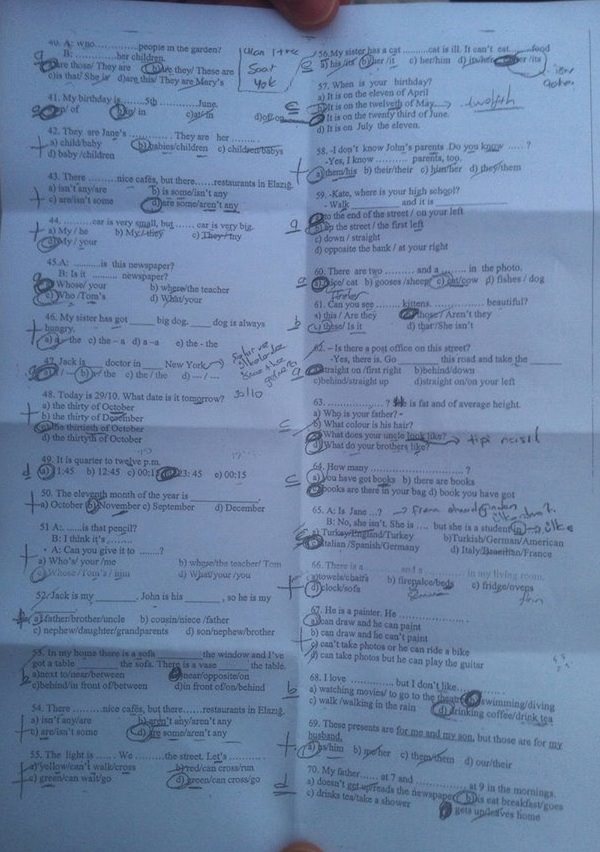 40. A: who..............people in the garden?
B: ..................her children.
are those/ They are b)are they/ These are
c)is that/ She is d)are this/ They are Mary's
41. My birthday is......5th ..............June.
on/ of b)on/ in c)at/ in d)of/on
42. They are Jane's ............. They are her ........
a) child/baby b) babies/children c) children/babys
d) baby /children
43. There ..........nice cafés, but there......restaurants in Elazığ.
a) isn't any/are b) is some/isn't any
c) are/isn't some d)are some/aren't any
44. ........car is very small, but ...... car is very big.
a) My / he b) My / they c) They / my
d) My / your
45.A: .........is this newspaper?
B: Is it ......... newspaper?
Whose/ your b) where/the teacher
c)Who /Tom's d) What/your
46. My sister has got ____ big dog, ____ dog is always
hungry.
a) a – the c) the – a d) a–a e) the - the
47. Jack is ____ doctor in ____ New York.
/ – b) a / the c) the / the d) --- / ---
48. Today is 29/10. What date is it tomorrow?
a) the thirty of October
b) the thirty of December
c) the thirtieth of October
d) the thirtyth of October
49. It is quarter to twelve p.m.
a) 11:45 b) 12:45 c) 00:15 d) 23: 45 e) 00:15
50. The eleventh month of the year is ____________.
a) October b) November c) September d) December
51 A:.......is that pencil?
B: I think it's ........
A: Can you give it to .......?
a) Who's/ your /me b) whose/the teacher/ Tom
c) Whose/Tom's / him d) What/your /you
52. Jack is my ________. John is his _______, so he is my
a) father/brother/uncle b) cousin/niece /father
c) nephew/daughter/grandparents d) son/nephew/brother
53. In my home there is a sofa ________ the window and I've
got a table ________ the sofa. There is a vase ______ the table.
a)next to/near/between near/opposite/on
c)behind/in front of/between d)in front of/on/behind
54. There ..........nice cafés, but there ..........restaurants in Elazığ.
a) isn't any/are b) aren't any/aren't any
c) are/isn't some d) are some/aren't any
55. The light is ...... We ..........the street. Let's ..........
a) yellow/can't walk/cross b)red/can cross/run
c) green/can wait/go d) green/can cross/go
56.My sister has a cat ..........cat is ill. It can't eat.......food
a) his /its b)her /it c) her/him d) its/her her /its
57. When is your birthday?
a) It is on the eleven of April
b)It is on the twelveth of May. twelfth
It is on the twenty third of June.
d) It is on July the eleven.
58. -I don't know John's parents. Do you know ..... ?
-Yes, I know ........... parents, too.
a) them/his b) their/their c) him/her d) they/them
59. -Kate, where is your high school?
- Walk __________ and it is __________
to the end of the street / on your left
b) up the street / the first left
c) down / straight
d) opposite the bank / at your right
60. There are two ......... and a ......... in the photo.
/ cat b) gooses / sheep c) cat/cow d) fishes / dog
61. Can you see ....... kittens. ............. beautiful?
a) this / Are they those/ Aren't they
c) these/ Is it d) that/She isn't
62. – Is there a post office on this street?
-Yes, there is. Go ________ this road and take the _____
straight on/first right b)behind/down
c)behind/straight up d)straight on/on your left
63. .................. ? He is fat and of average height.
a) Who is your father? -
b) What colour is his hair?
What does your uncle look like? tipi nasıl
d) What do your brothers like?
64. How many ............................ ?
a) you have got books b) there are books
books are there in your bag d) book you have got
65. A: Is Jane ...?
B: No, she isn't. She is .... but she is a student in ülke
Turkey/England/Turkey b)Turkish/German/American
Italian /Spanish/Germany d) Italy/Brasilia/France
66. There is a ............ and a ............ in my living room.
a)towels/chairs b) fireplace/beds c) fridge/ovens
d)clock/sofa
67. He is a painter. He ....................
a)can draw and he can paint
b) can draw and he can't paint
c) can't take photos or he can ride a bike
d) can take photos but he can play the guitar
68. I love ............... but I don't like...............
a) watching movies/ to go to the theatre swimming/diving
c) walk /walking in the rain d) drinking coffee/drink tea
69. These presents are for me and my son, but those are for my
husband.
a) us/him b) me/her c) them/them d) our/their
70. My father ...... at 7 and ................ at 9 in the mornings.
a) doesn't get up/reads the newspaper b)is eat breakfast/goes
c) drinks tea/take a shower gets up/leaves home